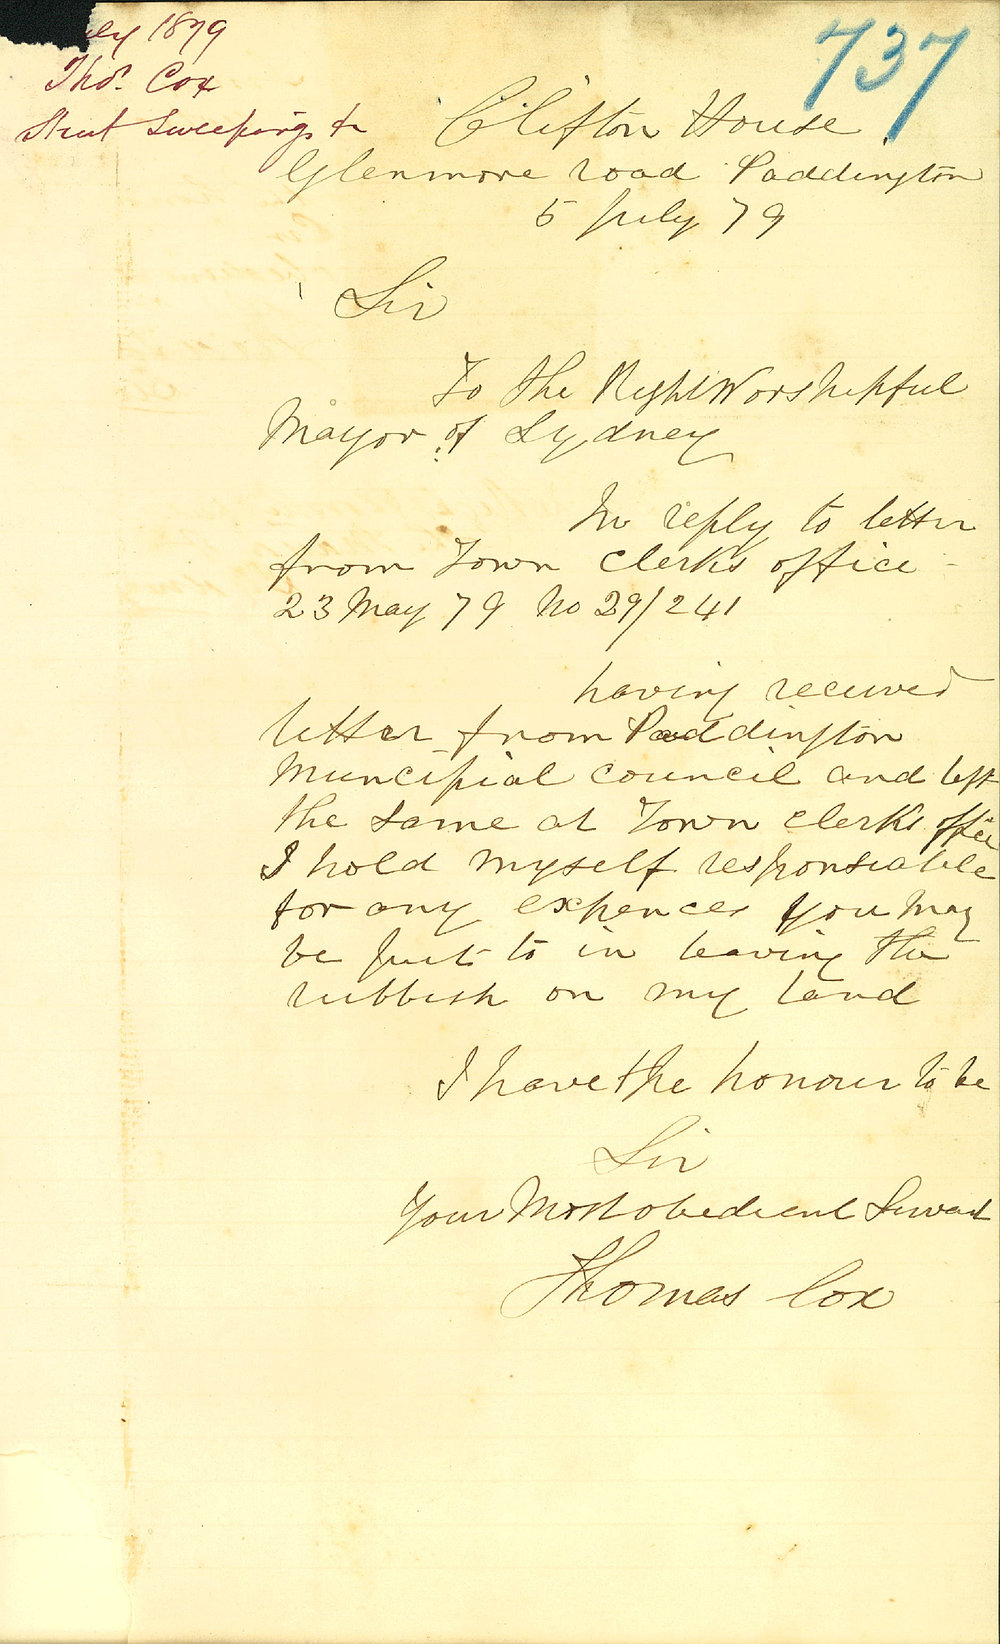 July 1879
Thos. Cox
Street Sweepings &c
737
Clifton House
Glenmore road Paddington
5 July 79
Sir
To the Right Worshipful
Mayor of Sydney
In reply to letter
from Town Clerks office
23 May 79 No 29/241
having received
letter from Paddington
Muncipial council and left
the same at Town clerks office
I hold myself responsiable
for any expences you may
be put to in leaving the
rubbish on my land
I have the honour to be
Sir
Your Most obedient Servant
Thomas Cox